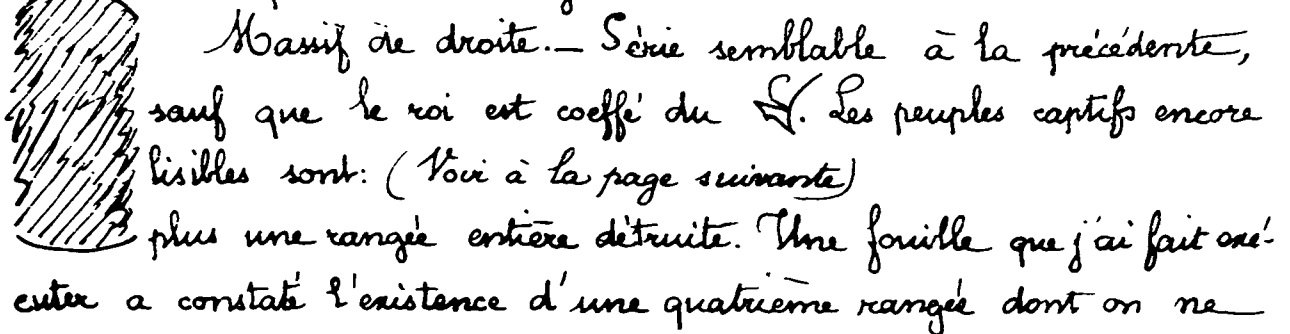 Massif de droite. — Série semblable à la précédente,
sauf que le roi est coeffé du . Les peuples captifs encore
lisibles sont: (Voir à la page suivante)
plus une rangée entière détruite. Une fouille que j'ai fait exé-
cuter a constaté l'existence d'une quatrième rangée dont on ne